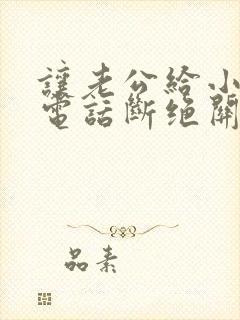 讓老公給小
電話斷绝開
品素